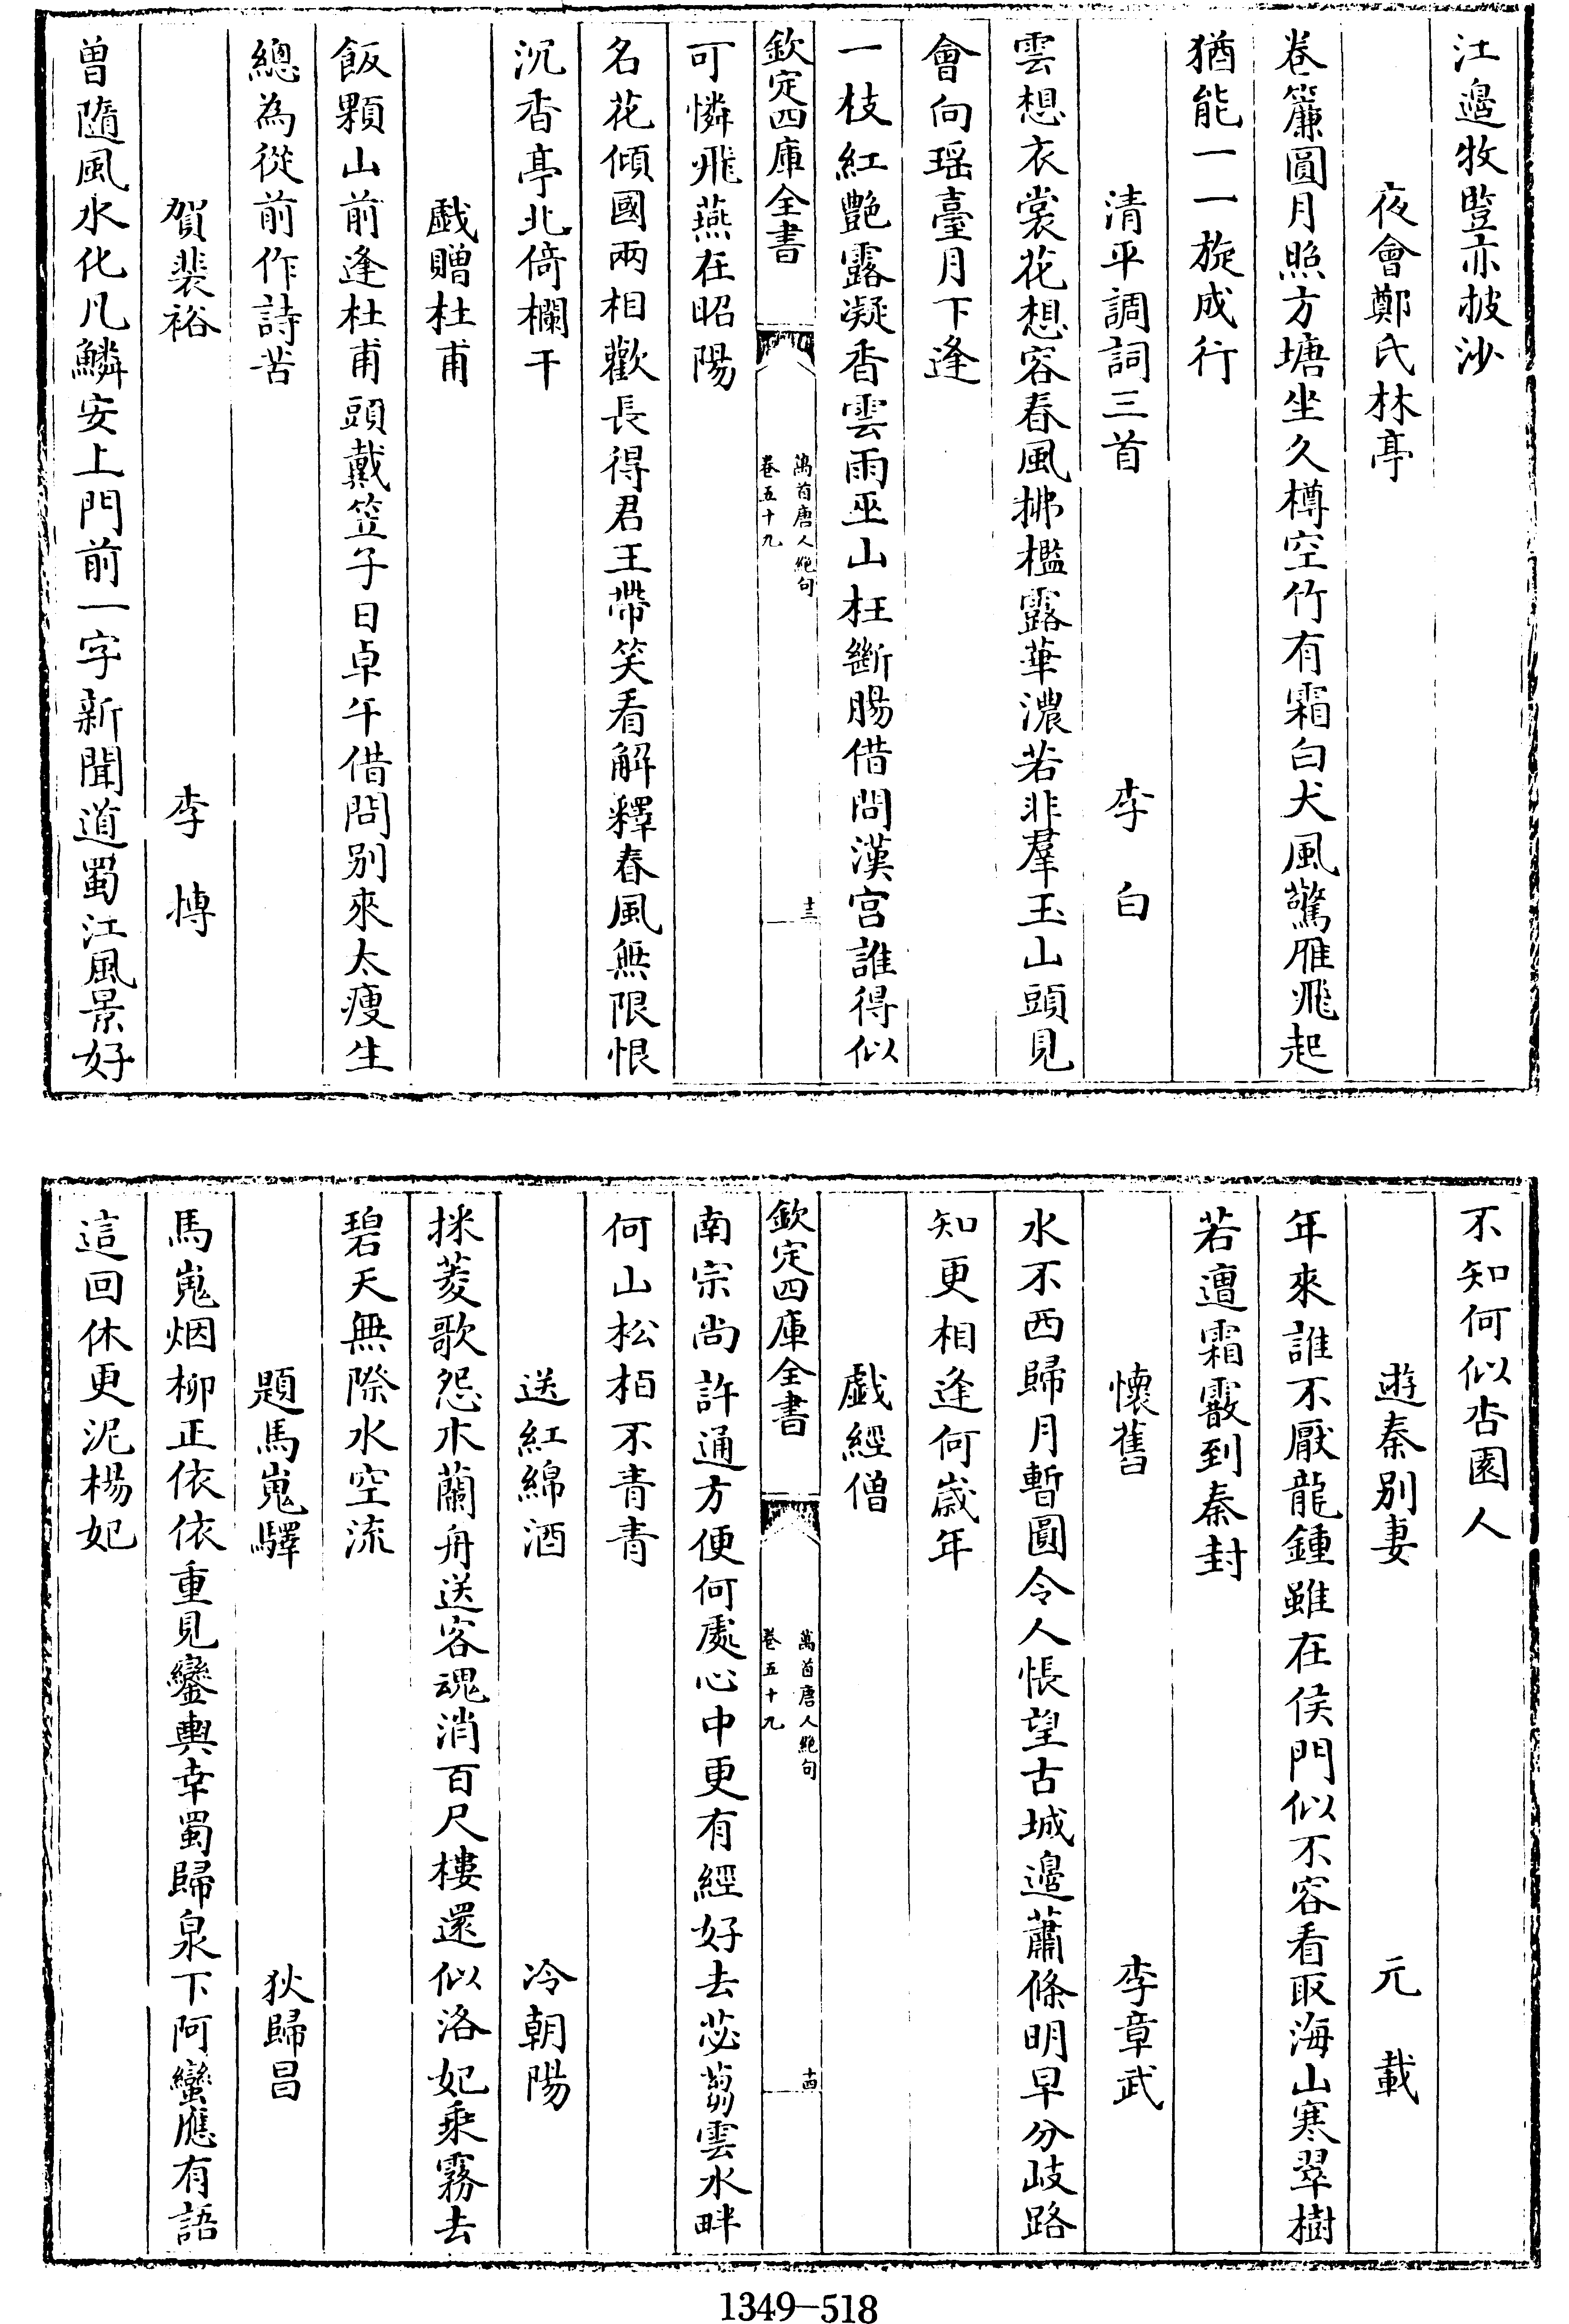 江邉牧豎亦披沙
夜會鄭氏林亭
卷簾圓月照方塘坐久樽空竹有霜白犬風驚雁飛起
猶能一一旋成行
清平調詞三首　李白
雲想衣裳花想容春風拂檻露華濃若非羣玉山頭見
會向瑶臺月下逢
一枝紅艷露凝香雲雨巫山枉斷腸借問漢宫誰得似
欽定四庫全書
萬首唐人絶句
卷五十九
十三
可憐飛燕在昭陽
名花傾國兩相歡長得君王帶笑看解釋春風無限恨
沉香亭北倚欄干
戲贈杜甫
飯顆山前逢杜甫頭戴笠子日卓午借問别來太瘦生
總為從前作詩苦
賀裴裕　李慱
曽隨風水化凡鱗安上門前一字新聞道蜀江風景好
不知何似杏園人
遊秦别妻　元載
年來誰不厭龍鍾雖在侯門似不容看取海山寒翠樹
若遭霜霰到秦封
懷舊　李章武
水不西歸月暫圓令人悵望古城邉蕭條明早分岐路
知更相逢何歳年
戯經僧
欽定四庫全書
萬首唐人絶句
卷五十九
十四
南宗尚許通方便何處心中更有經好去苾蒭雲水畔
何山松栢不青青
送紅綿酒　冷朝陽
採菱歌怨木蘭舟送客魂消百尺樓還似洛妃乘霧去
碧天無際水空流
題馬嵬驛　狄歸昌
馬嵬烟柳正依依重見鑾輿幸蜀歸泉下阿蠻應有語
這回休更泥楊妃
1349—518